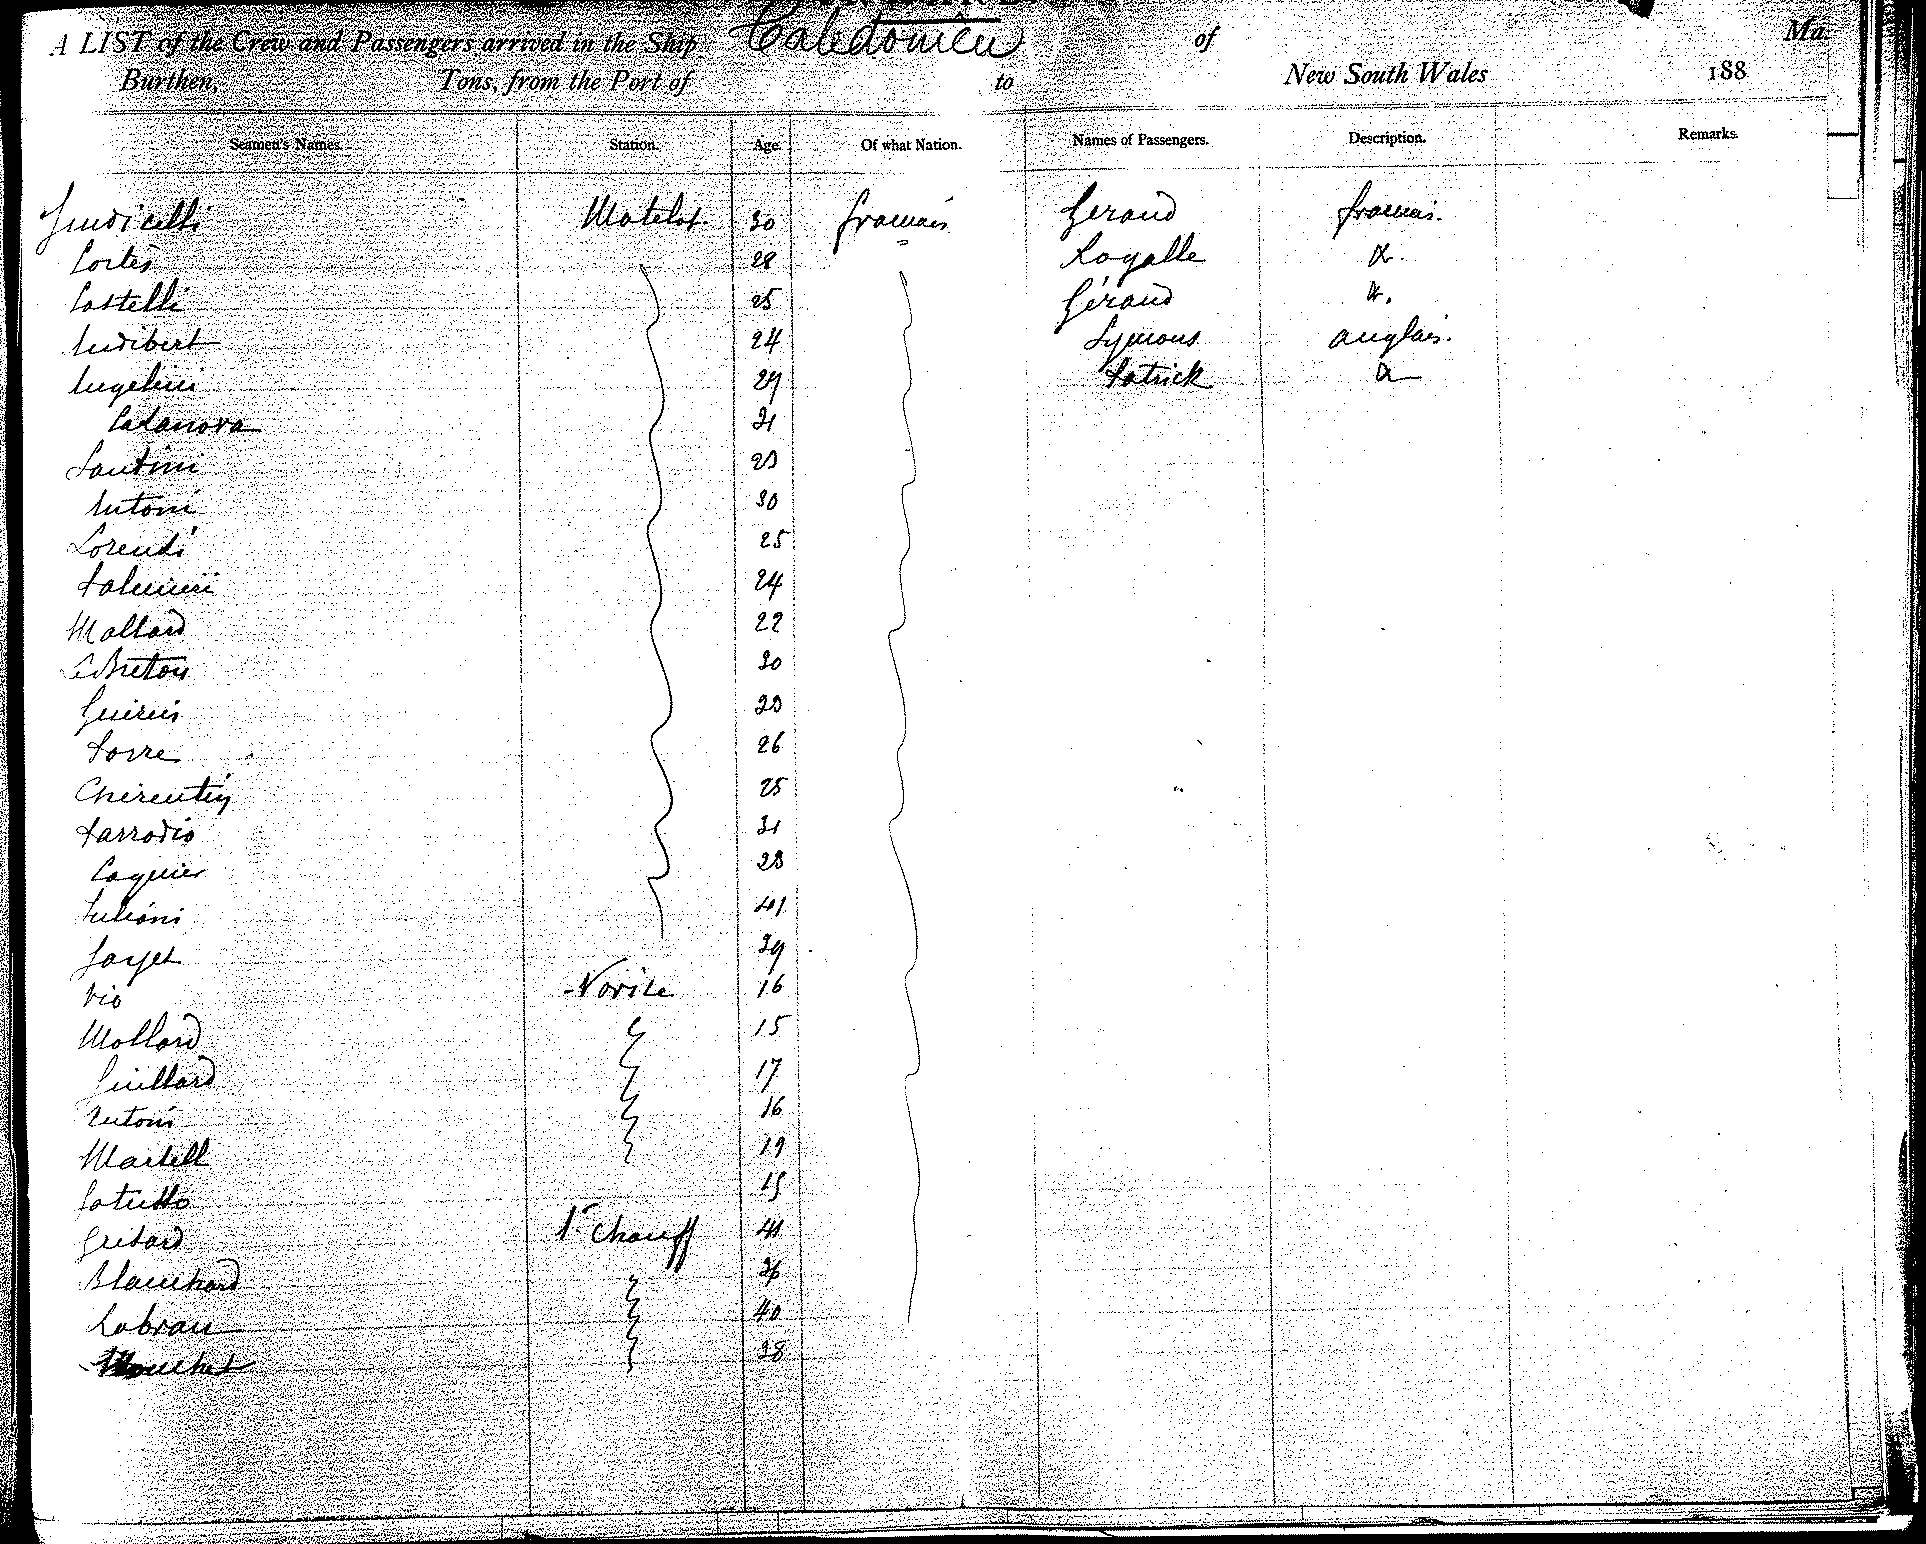 A LIST of the Crew and Passengers arrived in the Ship Caledonien of Ma
Burthen, Tons, from the Port of to New South Wales 188
Seamen's Names. Station. Age Of what Nation. Names of Passengers. Description. Remarks.
Giudicelli Matelot 30 français Geraud français.
Cortès 28 Royalle d.
Castelli 25 Géraud d.
Audibert 24 Symons anglais.
Angelini 29 Patrick d
Casanova 31
Santini 23
Antoni 30
Lorenzi 25
Palmieri 24
Mallard 22
Le Breton 30
Guérin 23
Torre 26
25
31
23
Juliani 41
39
Vio Novice 16
Mollard 15
Guillard 17
Antoni 16
Martell 19
15
1r Chauff 41
Blanchard 36
40
38